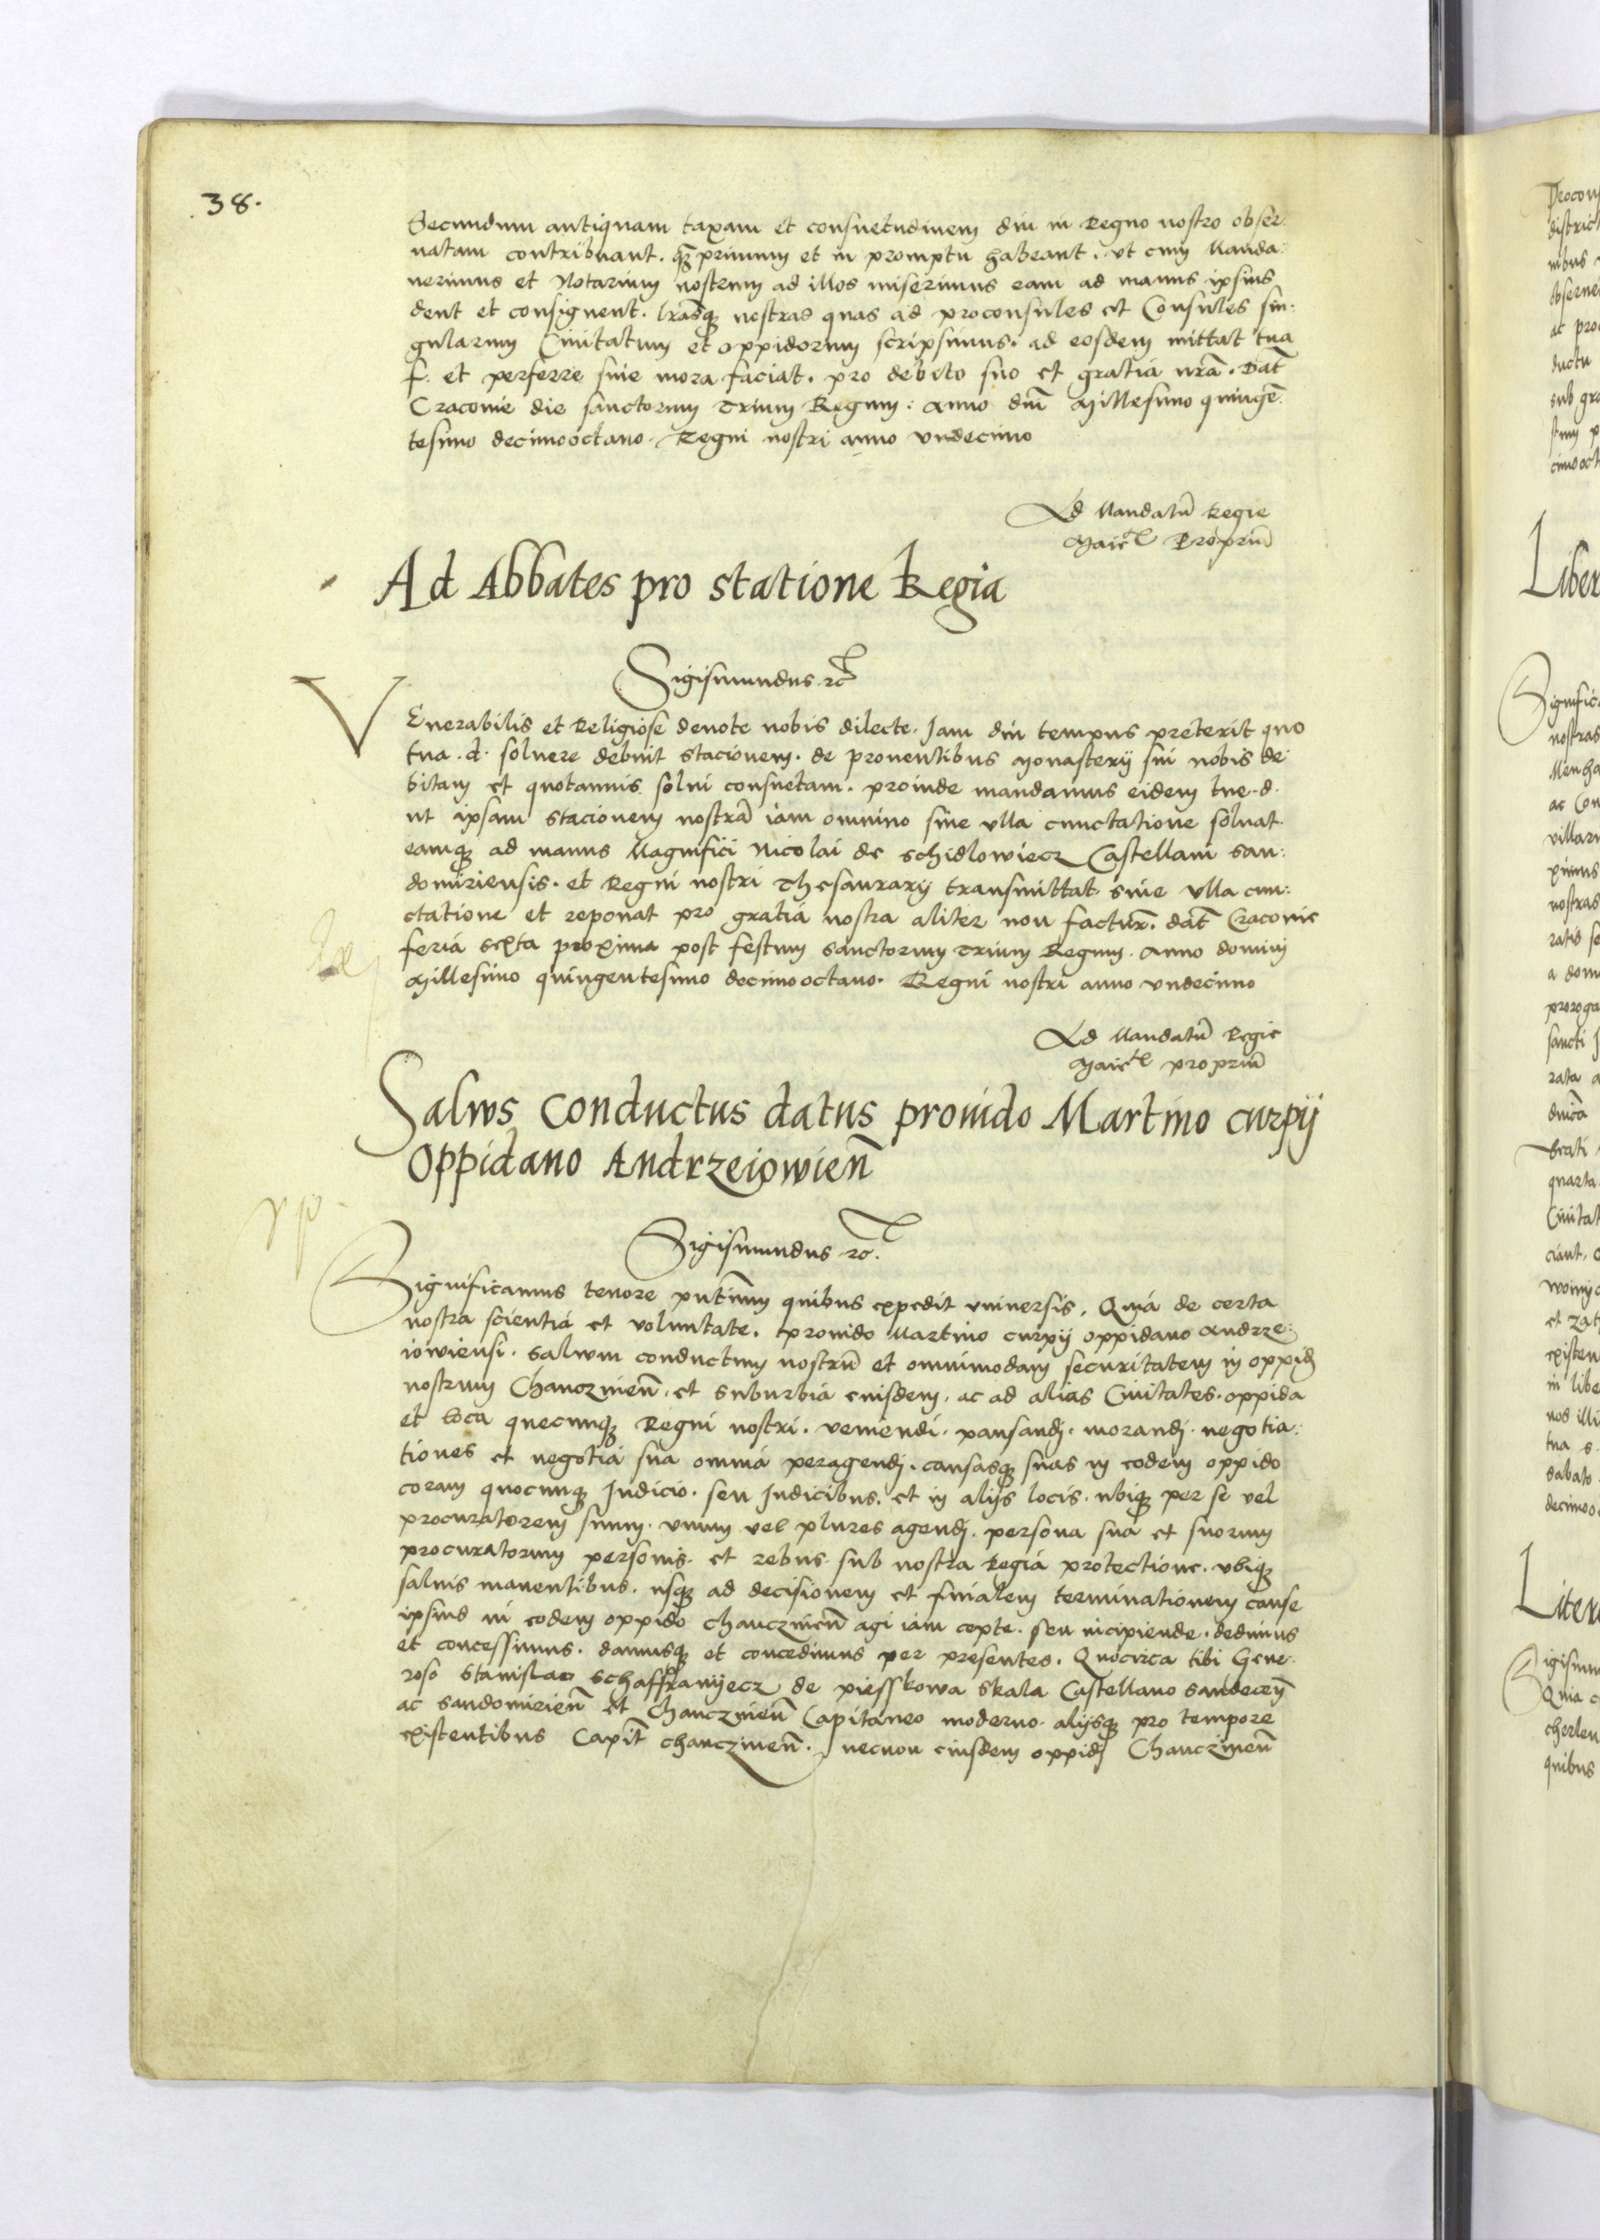 38.
Secundum antiquam taxam et consuetudinem diu in Regno nostro obser
uatam contribuant. qẽprimum et in promptu habeant. ut cum Manda:
uerimus et Notarium nostrum ad illos miserimus eam ad manus ipsius
dent et consignent. lrãsqȝ nostras quas ad proconsules et Consules sin:
gularum Ciuitatum et oppidorum scripsimus. ad eosdem mittat tua
f. et perferre sine mora faciat. pro debito suo et gratia nrã. Dat̃
Cracouie die sanctorum Trium Regum: Anno dnĩ Millesimo quingẽ
tesimo decimooctauo. Regni nostri anno vndecimo
Ad Mandatũ Regie
Maietͭ Propriũ
Ad Abbates pro statione Regia
Sigismundus ꝛc̃
VEnerabilis et Religiose deuote nobis dilecte. Iam diu tempus preterit quo
tua .d. soluere debuit stacionem. de prouentibus Monasterij sui nobis de:
bitam et quotannis solui consuetam. proinde mandamus eidem tue .d.
ut ipsam stacionem nostrã iam omnino sine vlla cunctatione soluat.
eamqȝ ad manus Magnifici Nicolai de Schidlowiecz Castellani San:
domiriensis. et Regni nostri Thesaurarij transmittat sine vlla cun:
ctatione et reponat pro gratia nostra aliter non factur̃. dat̃ Cracouie
feria sexta proxima post festum sanctorum Trium Regum. Anno domini
Millesimo quingentesimo decimooctauo. Regni nostri anno vndecimo
Ad Mandatũ Regie
Maietͭ propriũ
Salws conductus datus prouido Martino curpij
Oppidano Andrzeiowieñ
Sigismundus ꝛc̃.
Significamus tenore pñtium quibus expedit vniuersis. Quia de certa
nostra scientia et voluntate. prouido Martino curpij oppidano Andrze:
iowiensi. saluum conductum nostrũ et omnimodam securitatem in oppidũ
nostrum Chanczineñ. et suburbia eiusdem. ac ad alias Ciuitates. oppida
et loca quecunqȝ Regni nostri. veniendi. pausandj. morandj. negotia:
tiones et negotia sua omnia peragendj. causasqȝ suas in eodem oppido
coram quocunqȝ Iudicio. seu Iudicibus. et in alijs locis. ubiqȝ per se vel
procuratorem suum. vnum vel plures agendj. persona sua et suorum
procuratorum personis. et rebus. sub nostra Regia protectione. vbiqȝ
saluis manentibus. usqȝ ad decisionem et finalem terminationem cause
ipsius in eodem oppido Chanczineñ agi iam cepte. seu incipiende. dedimus
et concessimus. damusqȝ et concedimus per presentes. Quocirca tibi Gene:
roso Stanislao Schaffranyecz de piesskowa skala Castellano Sandeceñ
ac Sandomirieñ et Chanczineñ Capitaneo moderno. alijsqȝ pro tempore
existentibus Capit̃ Chanczineñ. necnon eiusdem oppidj Chanczineñ